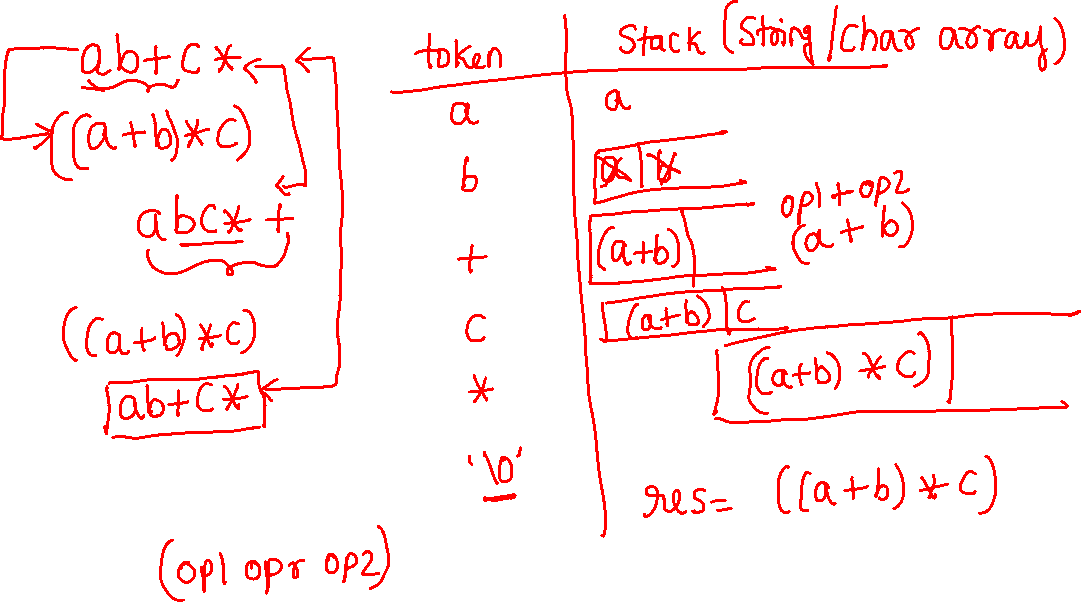 ab+c*
((a+b)*c)
abc*+
((a+b)*c)
ab+c*
(op1 opr op2)
token
Stack (String/Char array)
a
a
b
a b
+
(a+b)
op1+op2
(a+b)
c
(a+b) c
*
((a+b) * c)
'\0'
res= ((a+b)*c)